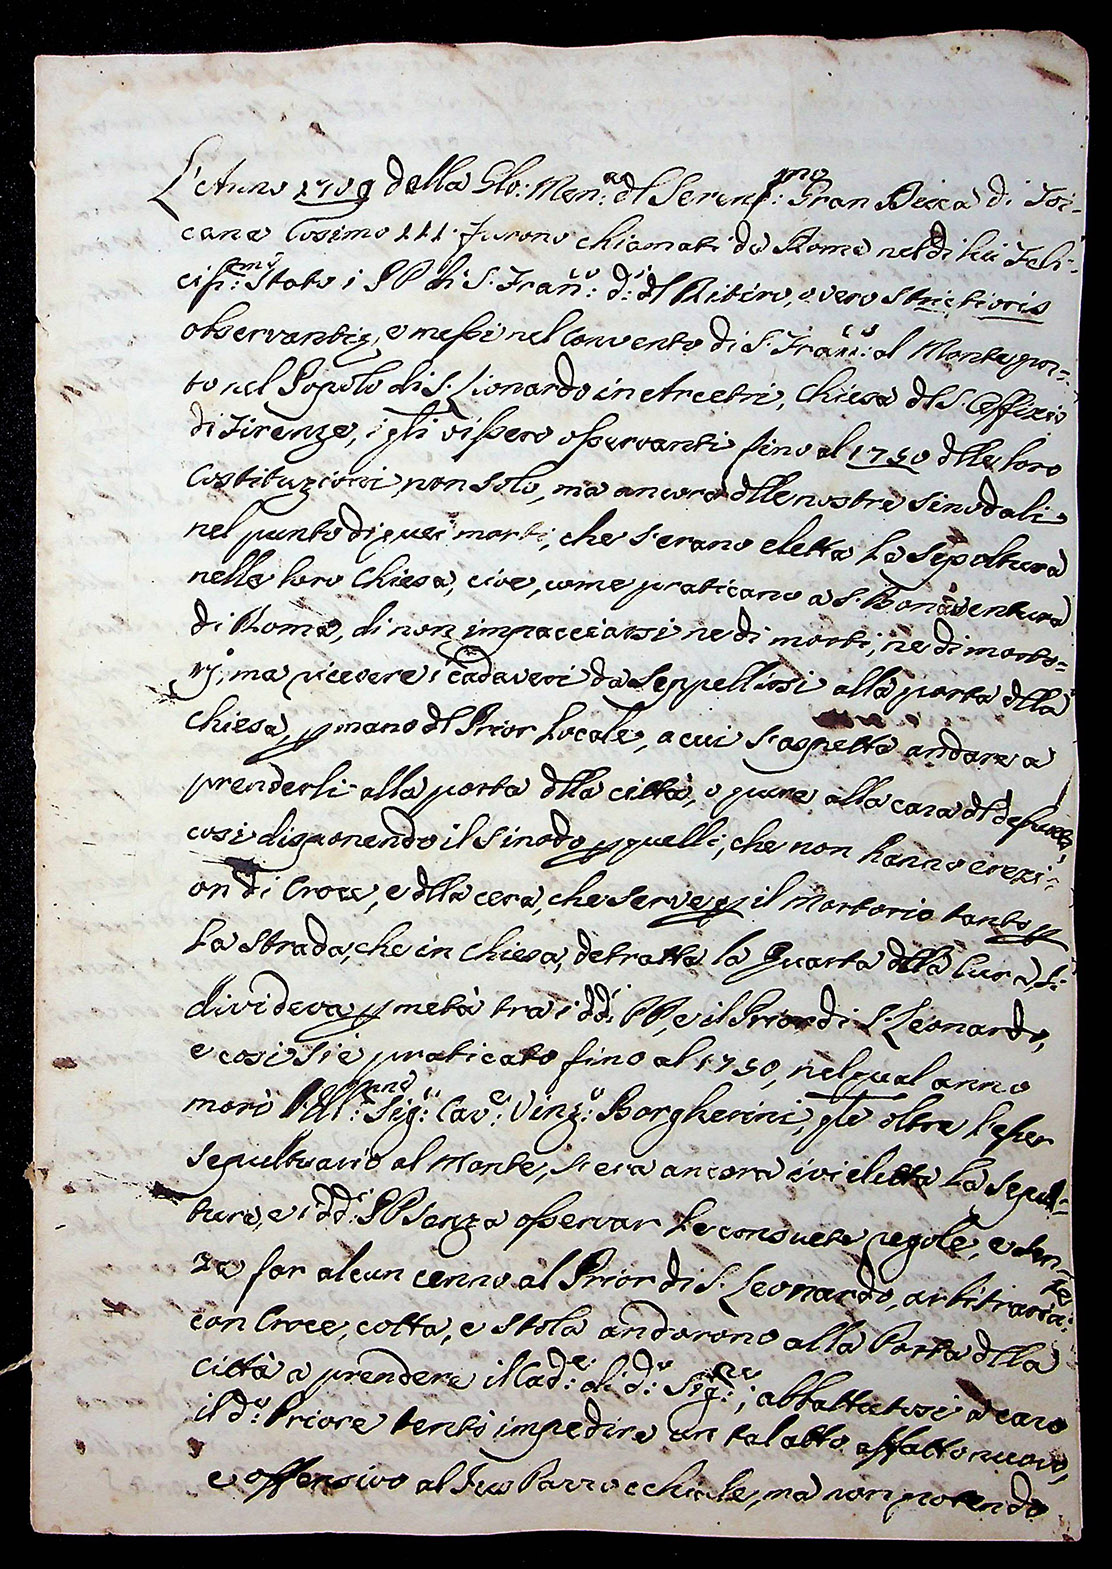 L'Anno 1709 della Glo: Mem:ᵃ dl Serenss:ᵐᵒ Gran Duca di Tos-
cana Cosimo III. furono chiamati da Roma nel di lui Feli-
ciss:ᵐᵒ Stato i PP di S. Fran:ᶜᵒ d:ⁱ dl Ritiro, o vero strictioris
observantiæ, e messi nel Convento di S. Fran:ᶜᵒ al Monte pos-
to nel Popolo di S. Lionardo in Arcetri, Chiesa dl S. Offizio
di Firenze, i qli vissero osservanti fino al 1750 dlle loro
Costituzioni non solo, ma ancora dlle nostre Sinodali
nel punto di quei morti, che s'erano eletta la Sepoltura
nella loro Chiesa, cioe, come praticano a S. Bonaventura
di Roma, di non impacciarsi ne di morti, ne di morto-
rj, ma ricevere i cadaveri da Seppellirsi alla porta dlla
Chiesa, p mano dl Prior Locale, a cui s'aspetta andare a
prenderli alla porta dlla città, o pure alla casa dl defunto,
cosi disponendo il Sinodo p quelli, che non hanno erezi-
on di Croce, e dlla cera, che serve p il Mortorio tanto p
la strada, che in Chiesa, detratta la Quarta dlla Cura, si
divideva p metà tra i dd:ⁱ PP, e il Prior di S. Leonardo,
e cosi si è praticato fino al 1750, nel qual anno
morì l'Ill:ᵐᵒ Sig:ʳᵉ Cav:ᵉ Vinz:ᵒ Borgherini, qle oltre l'esser
sepultuario al Monte, s'era ancora ivi eletta la Sepul-
tura, e i dd:ⁱ PP senza osservar le consuete regole, e sen-
za far alcun cenno al Prior di S. Leonardo, arbitraria:ᵗᵉ
con Croce, cotta, e stola andorono alla Porta dlla
città a prendere il Cad:ᵉ di d:ᵒ Sig:ʳᵉ; abbattutosi a caso
il d:ᵒ Priore tentò impedire un tal atto affatto nuovo,
e offensivo al Jus Parrocchiale, ma non potendo